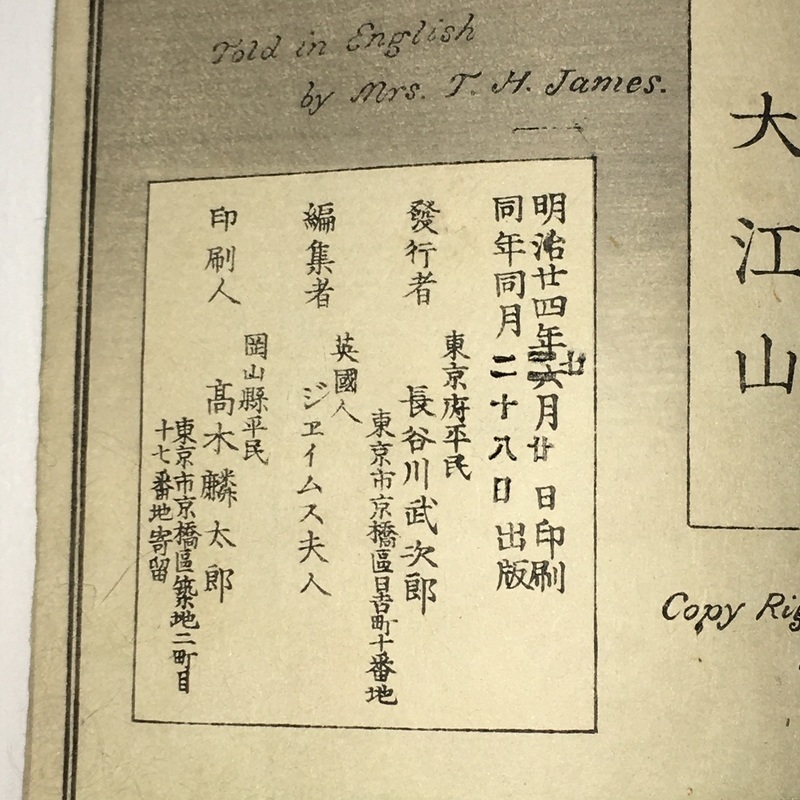 Told in English
by Mrs. T. H. James.
大江山
明治廿四年六月廿 日印刷
同年同月二十八日出版
東京府平民
發行者 長谷川武次郎
東京市京橋區日吉町十番地
英國人
編集者 ジェイムス夫人
岡山縣平民
印刷人 髙木麟太郎
東京市京橋區築地二町目
十七番地寄留
Copy